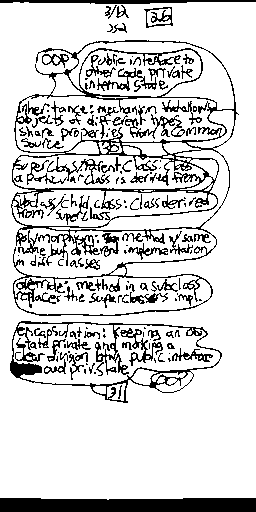 3/12
252
26
OOP
Public interface to
other code, private
internal state.
Inheritance: mechanism that allows
objects of different types to
share properties from a common
source.
Superclass/Parent Class: Class
a particular class is derived from
Subclass/Child class: Class derived
from superclass
polymorphism: method w/ same
name but different implementation
in diff classes
override: method in a subclass
replaces the superclass's impl.
encapsulation: keeping an obj
state private and making a
clear division btwn public interface
and priv. state
OOP